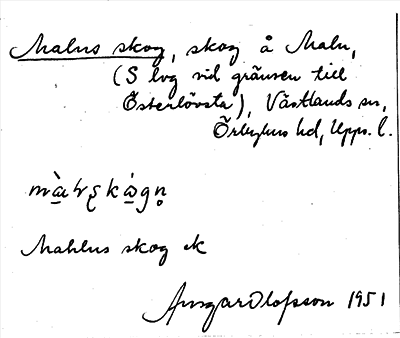 Malns skog, skog å Maln,
(S lvg vid gränsen till
Österlövsta), Västlands sn,
Örbyhus hd, Upps. l.
Mahlns skog ek
Ansgar Olofsson 1951